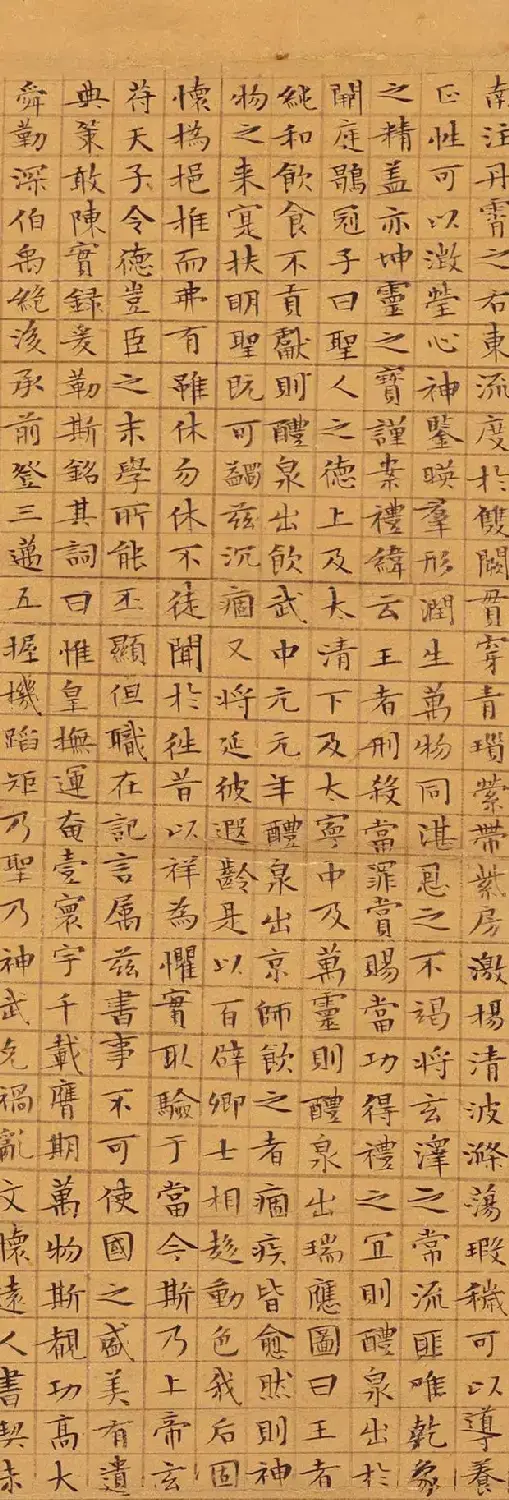 南注丹霄之右東流度於雙闕貫穿青瑣縈帶紫房激楊清波滌蕩瑕穢可以導養
正性可以澂瑩心神鑒暎羣形潤生萬物同湛恩之不竭将玄澤之常流匪唯乾象
之精盖亦坤靈之寶謹案禮緯云王者刑殺當罪賞賜當功得禮之宜則醴泉出於
闕庭鶡冠子曰聖人之德上及太清下及太寧中及萬靈則醴泉出瑞應圖曰王者
純和飲食不貢獻則醴泉出飲武中元元年醴泉出京師飲之者痼疾皆愈然則神
物之来寔扶明聖既可蠲兹沉痼又将延彼遐齡是以百辟卿士相趍動色我后固
懷撝挹推而弗有雖休勿休不徒聞於徃昔以祥為懼實取驗于當今斯乃上帝玄
苻天子令德豈臣之末學所能丕顯但職在記言属兹書事不可使國之盛美有遺
典策敢陳實録爰勒斯銘其詞曰惟皇撫運奄壹寰宇千載膺期萬物斯覩功高大
舜勤深伯禹絶後承前登三邁五握機蹈矩乃聖乃神武克禍亂文懷遠人書契未